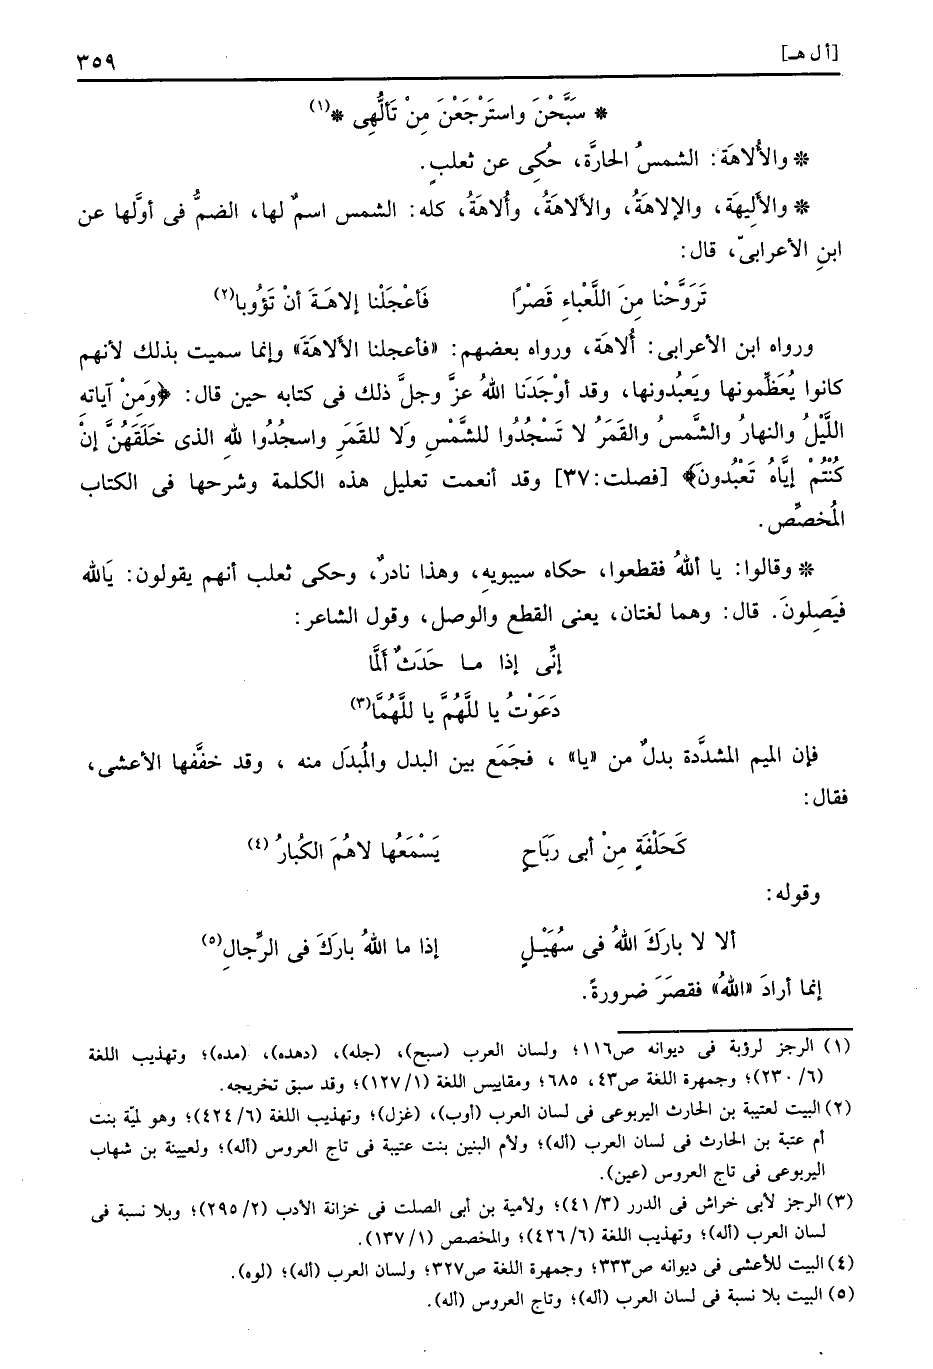 [أ ل هـ] ٣٥٩
* سَبَّحْنَ واستَرْجَعْنَ مِنْ تَألُّهِى *(١)
* والأُلاهَة: الشمسُ الحارَّة، حُكِى عن ثعلبٍ.
* والأَلِيهَة، والإلاهَةُ، والأَلاهَةُ، وأُلاهَةُ، كله: الشمس اسمٌ لها، الضمُّ فى أوَّلها عن
ابنِ الأعرابىّ، قال:
تَرَوَّحْنا مِنَ اللَّعْباءِ قَصْرًا فَأعْجَلْنا إلاهَـةَ أنْ تَؤُوبا(٢)
ورواه ابن الأعرابى: أُلاهَة، ورواه بعضهم: «فأعجلنا الألاهَةَ» وإنما سميت بذلك لأنهم
كانوا يُعَظِّمونها ويَعبُدونها، وقد أوْجَدَنَا اللهُ عزَّ وجلَّ ذلك فى كتابه حين قال: ﴿وَمَنْ آياته
اللَّيْلُ والنهارُ والشَّمسُ والقَمَرُ لا تَسْجُدُوا للشَّمْسِ وَلا للقَمَرِ واسجُدُوا للهِ الذى خَلَقَهُنَّ إنْ
كُنْتُمْ إيَّاهُ تَعْبُدونَ﴾ [فصلت:٣٧] وقد أنعمت تعليل هذه الكلمة وشرحها فى الكتاب
المُخصِّص.
* وقالوا: يا أللهُ فقطعوا، حكاه سيبويهِ، وهذا نادرٌ، وحكى ثعلب أنهم يقولون: يَالله
فيَصِلونَ. قال: وهما لغتان، يعنى القطع والوصل، وقول الشاعر:
إنِّى إذا مـا حَدَثٌ ألَمَّا
دَعَوْتُ يا للَّهُمَّ يا للَّهُمَّا(٣)
فإن الميم المشدَّدة بدلٌ من «يا» ، فجَمَع بين البدل والمُبدَل منه ، وقد خفَّفها الأعشى،
فقال:
كَحَلْفَةٍ مِنْ أبى رَبَاحٍ يَسْمَعُها لاهُمَ الكُبارُ (٤)
وقوله:
ألا لا بارَكَ اللهُ فى سُهَيْـلٍ إذا ما اللهُ بارَكَ فى الرِّجالِ(٥)
إنما أرادَ «اللهُ» فقصَرَ ضرورةً.
(١) الرجز لرؤبة فى ديوانه ص١١٦؛ ولسان العرب (سبح)، (جله)، (دهده)، (مده)؛ وتهذيب اللغة
(٦/ ٢٣٠)؛ وجمهرة اللغة ص٤٣، ٦٨٥؛ ومقاييس اللغة (١/ ١٢٧)؛ وقد سبق تخريجه.
(٢) البيت لعتيبة بن الحارث اليربوعى فى لسان العرب (أوب)، (غزل)؛ وتهذيب اللغة (٦/ ٤٢٤)؛ وهو لميّة بنت
أم عتبة بن الحارث فى لسان العرب (أله)؛ ولأم البنين بنت عتيبة فى تاج العروس (أله)؛ ولعيينة بن شهاب
اليربوعى فى تاج العروس (عين).
(٣) الرجز لأبى خراش فى الدرر (٣/ ٤١)؛ ولأمية بن أبى الصلت فى خزانة الأدب (٢/ ٢٩٥)؛ وبلا نسبة فى
لسان العرب (أله)؛ وتهذيب اللغة (٦/ ٤٢٦)؛ والمخصص (١/ ١٣٧).
(٤) البيت للأعشى فى ديوانه ص٣٣٣؛ وجمهرة اللغة ص٣٢٧؛ ولسان العرب (أله)؛ (لوه).
(٥) البيت بلا نسبة فى لسان العرب (أله)؛ وتاج العروس (أله).